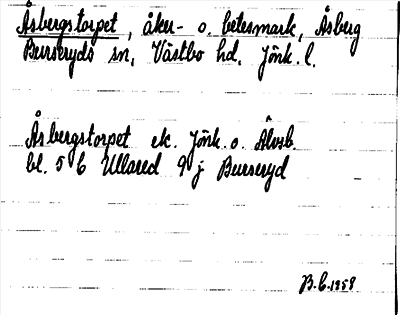 Åsbergstorpet, åker- o. betesmark, Åsberg
Burseryds sn, Västbo hd, Jönk. l.
Åsbergstorpet ek. Jönk. o. Älvsb.
bl. 5 6 Ullared 9 j Burseryd
B.C. 1958